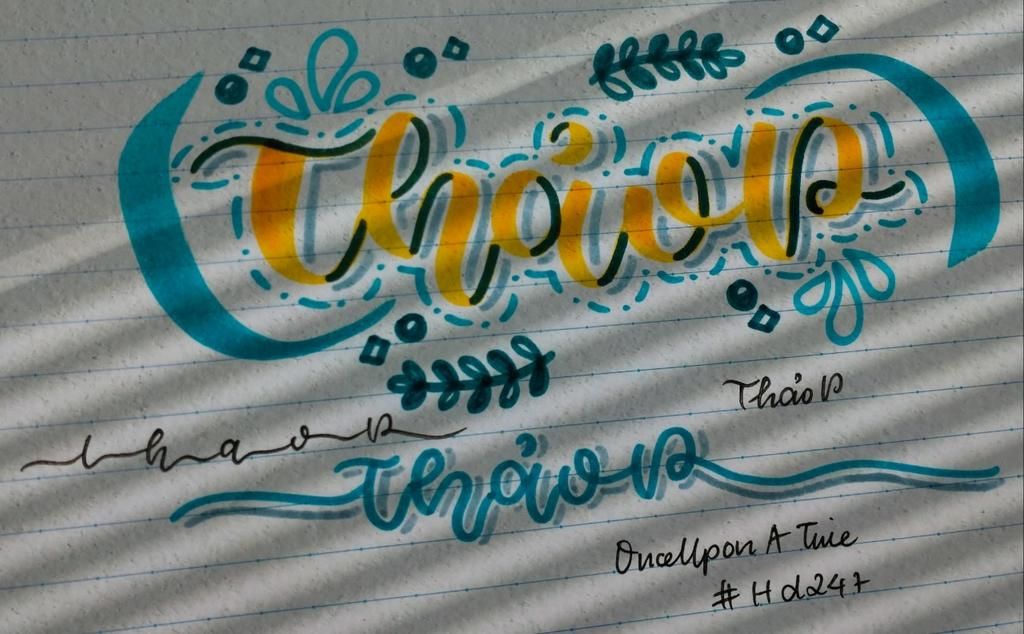 ThảoP
ThảoP
thaop
ThảoP
OnceUpon A Time
# Hd247